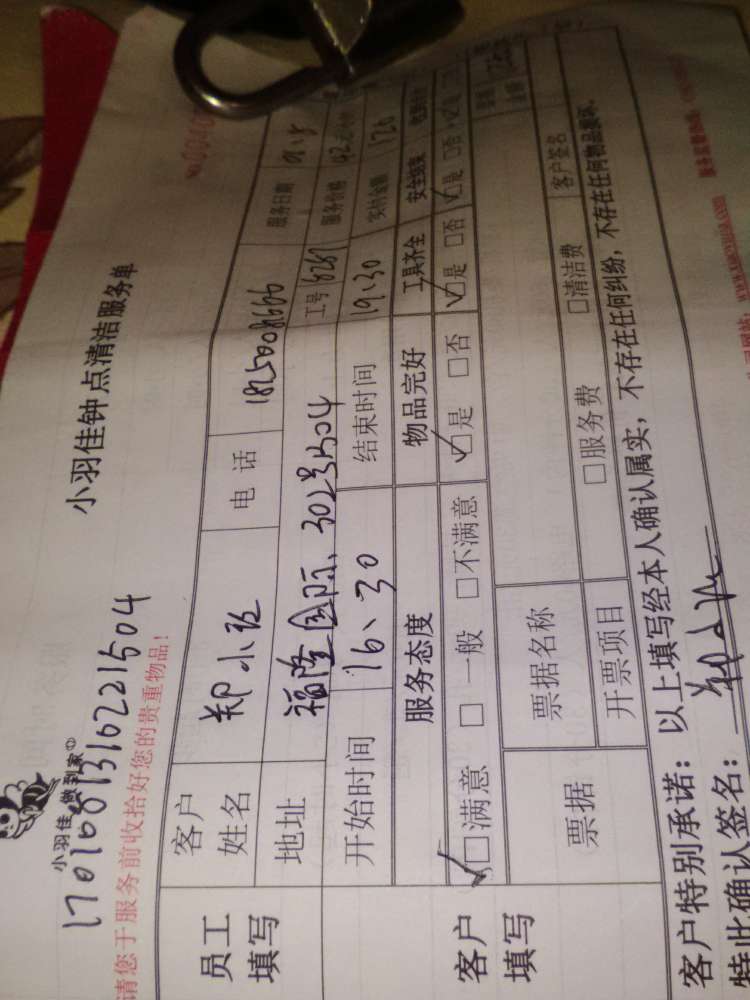 小羽佳 做到家
小羽佳钟点清洁服务单
请您于服务前收拾好您的贵重物品!
员工填写
客户姓名 郑小姐 电话 1825008666 服务日期
地址 福隆国际、302号1504 工号 8287 服务价格
开始时间 16、30 结束时间 19、30 实付金额 126
客户填写
服务态度 物品完好 工具齐全 安全结束
☑满意 □一般 □不满意 ☑是 □否 ☑是 □否 ☑是 □否
票据 票据名称
开票项目 □服务费 □清洁费 客户签名
客户特别承诺:以上填写经本人确认属实,不存在任何纠纷,不存在任何物品损坏。
特此确认签名: